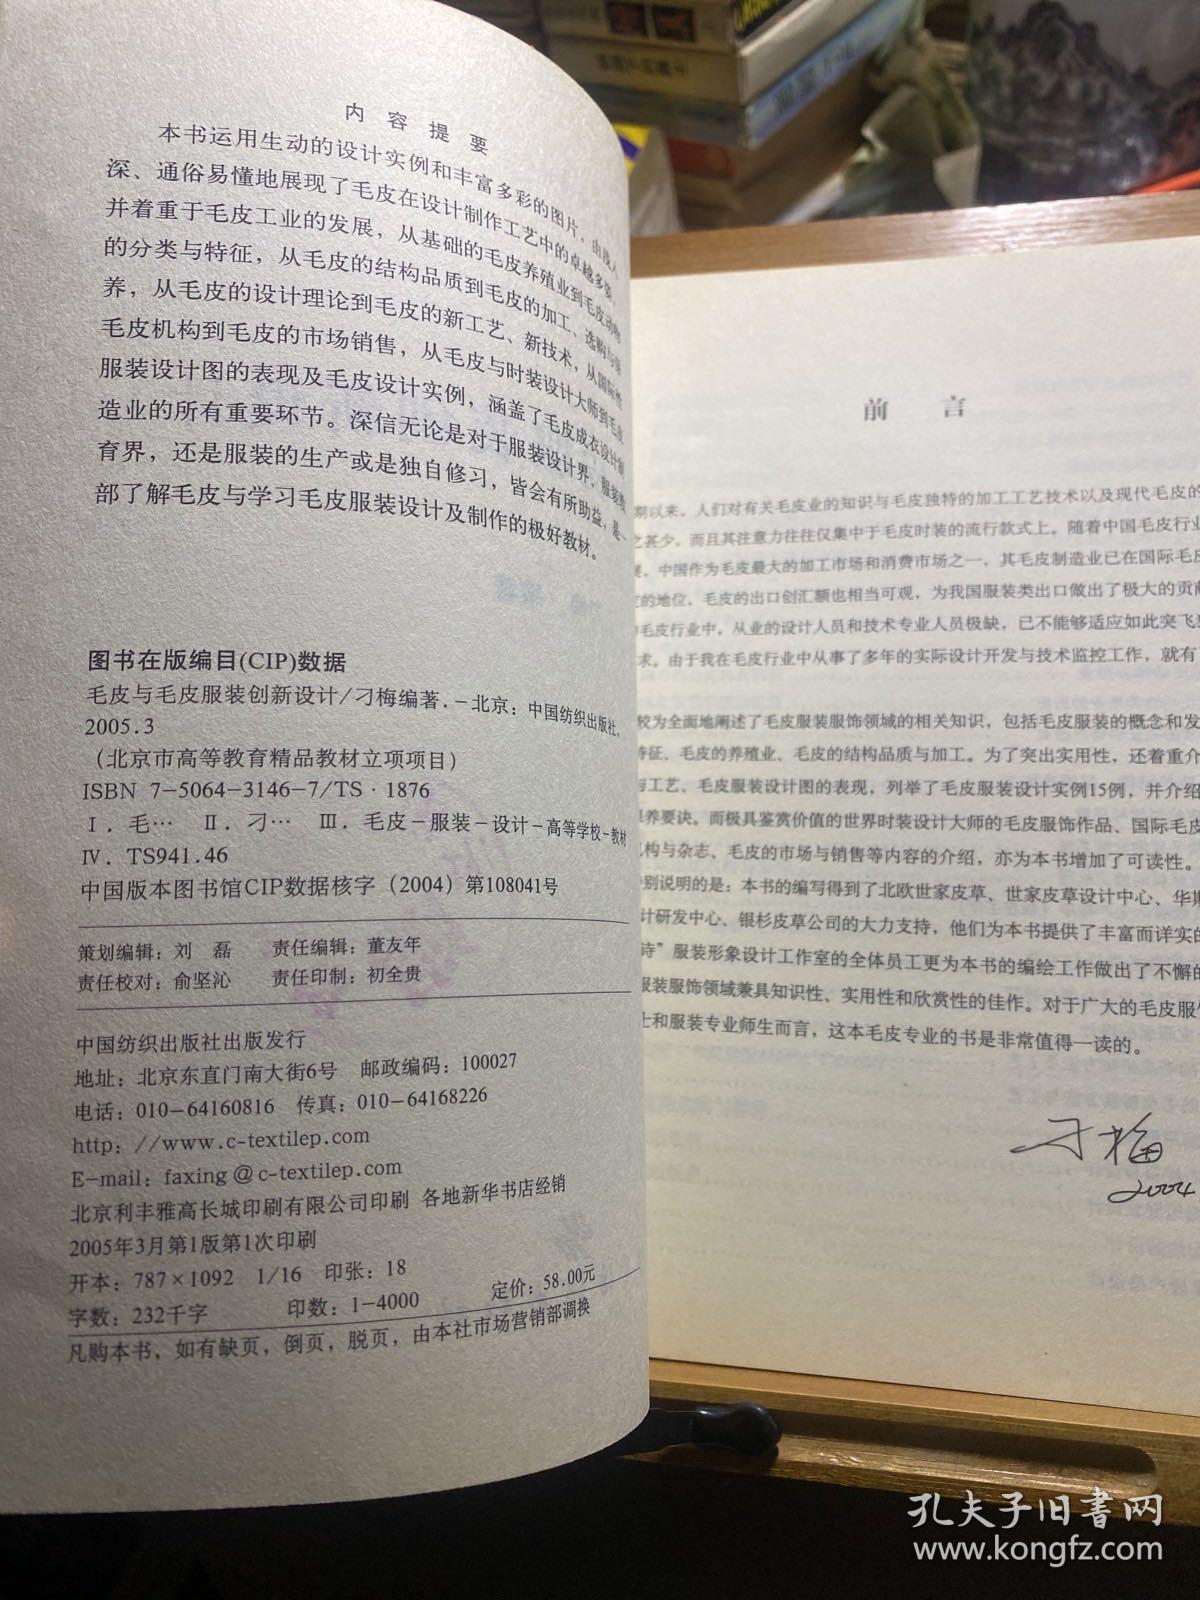 内 容 提 要
本书运用生动的设计实例和丰富多彩的图片，由浅入
深、通俗易懂地展现了毛皮在设计制作工艺中的卓越多姿，
并着重于毛皮工业的发展，从基础的毛皮养殖业到毛皮动物
的分类与特征，从毛皮的结构品质到毛皮的加工、选购与保
养，从毛皮的设计理论到毛皮的新工艺、新技术，从国际性
毛皮机构到毛皮的市场销售，从毛皮与时装设计大师到毛皮
服装设计图的表现及毛皮设计实例，涵盖了毛皮成衣设计制
造业的所有重要环节。深信无论是对于服装设计界、服装教
育界，还是服装的生产或是独自修习，皆会有所助益，是一
部了解毛皮与学习毛皮服装设计及制作的极好教材。
图书在版编目(CIP)数据
毛皮与毛皮服装创新设计/刁梅编著.－北京：中国纺织出版社，
2005.3
（北京市高等教育精品教材立项项目）
ISBN 7-5064-3146-7/TS·1876
Ⅰ.毛… Ⅱ.刁… Ⅲ.毛皮－服装－设计－高等学校－教材
Ⅳ. TS941.46
中国版本图书馆CIP数据核字（2004）第108041号
策划编辑：刘 磊 责任编辑：董友年
责任校对：俞坚沁 责任印制：初全贵
中国纺织出版社出版发行
地址：北京东直门南大街6号 邮政编码：100027
电话：010-64160816 传真：010-64168226
http: //www.c-textilep.com
E-mail: faxing@c-textilep.com
北京利丰雅高长城印刷有限公司印刷 各地新华书店经销
2005年3月第1版第1次印刷
开本：787×1092 1/16 印张：18
字数：232千字 印数：1-4000 定价：58.00元
凡购本书，如有缺页，倒页，脱页，由本社市场营销部调换
前 言
期以来，人们对有关毛皮业的知识与毛皮独特的加工工艺技术以及现代毛皮的
之甚少，而且其注意力往往仅集中于毛皮时装的流行款式上。随着中国毛皮行业
，中国作为毛皮最大的加工市场和消费市场之一，其毛皮制造业已在国际毛皮
的地位，毛皮的出口创汇额也相当可观，为我国服装类出口做出了极大的贡献
毛皮行业中，从业的设计人员和技术专业人员极缺，已不能够适应如此突飞
求。由于我在毛皮行业中从事了多年的实际设计开发与技术监控工作，就有
较为全面地阐述了毛皮服装服饰领域的相关知识，包括毛皮服装的概念和发
特征、毛皮的养殖业、毛皮的结构品质与加工。为了突出实用性，还着重介
与工艺、毛皮服装设计图的表现，列举了毛皮服装设计实例15例，并介绍
养要诀。而极具鉴赏价值的世界时装设计大师的毛皮服饰作品、国际毛皮
机构与杂志、毛皮的市场与销售等内容的介绍，亦为本书增加了可读性。
特别说明的是：本书的编写得到了北欧世家皮草、世家皮草设计中心、华斯
计研发中心、银杉皮草公司的大力支持，他们为本书提供了丰富而详实的
诗”服装形象设计工作室的全体员工更为本书的编绘工作做出了不懈的
服装服饰领域兼具知识性、实用性和欣赏性的佳作。对于广大的毛皮服
士和服装专业师生而言，这本毛皮专业的书是非常值得一读的。
刁梅
2004
孔夫子旧书网
www.kongfz.com